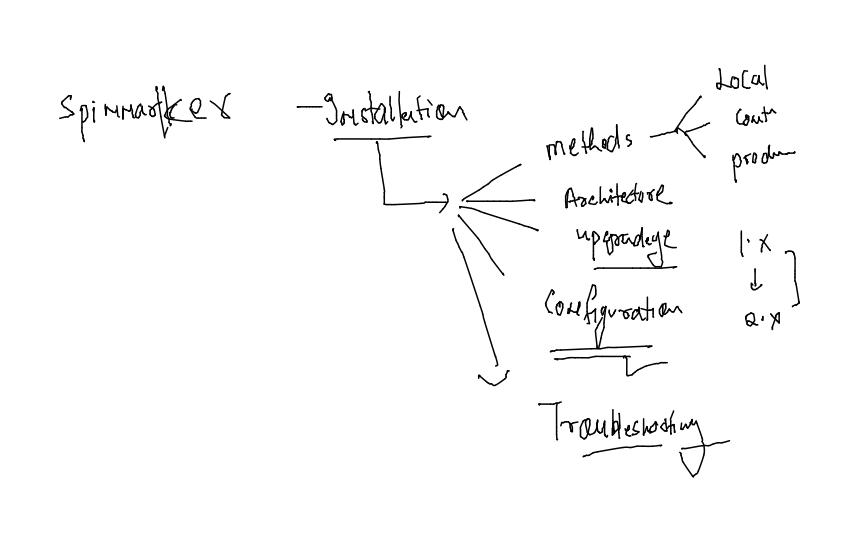 Spinnarker - Installation
methods
Local
Cont
produ
Architecture
upgradege
1.x
↓
2.x
Configuration
Troubleshooting